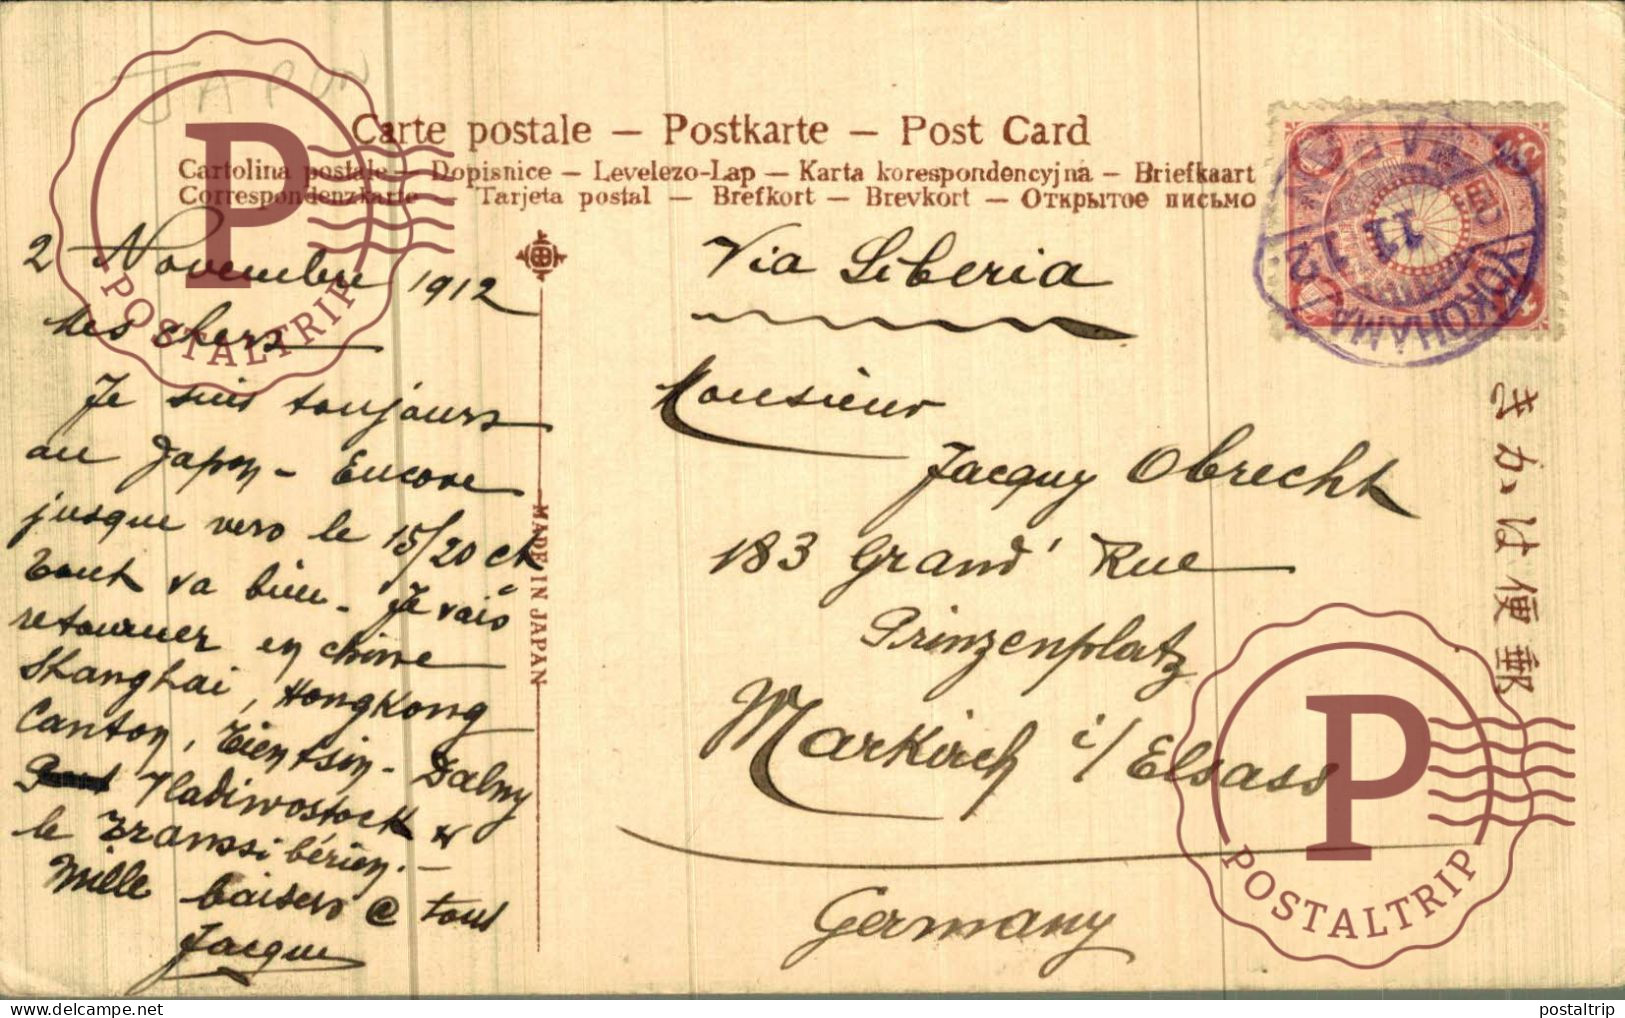 JAPON
Carte postale – Postkarte – Post Card
Cartolina postale – Dopisnice – Levelezo-Lap – Karta korespondencyjna – Briefkaart
Correspondenzkarte – Tarjeta postal – Brefkort – Brevkort – Открытое письмо
2 Novembre 1912
Mes chers
Je suis toujours
au Japon – Encore
jusque vers le 15/20 ct
Tout va bien – Je vais
retourner en chine
Shanghai, Hongkong
Canton, Tientsin – Dalny
Vladiwostock &
le Transsibérien. –
Mille baisers @ tous
Jacque
MADE IN JAPAN
Via Siberia
Monsieur
Jacquy Obrecht
183 Grand' Rue
Prinzenplatz
Markirch i/ Elsass
Germany
YOKOHAMA
JAPON
12. 11. 12
きかは便郵
P
POSTALTRIP
P
POSTALTRIP
postaltrip
postaltrip